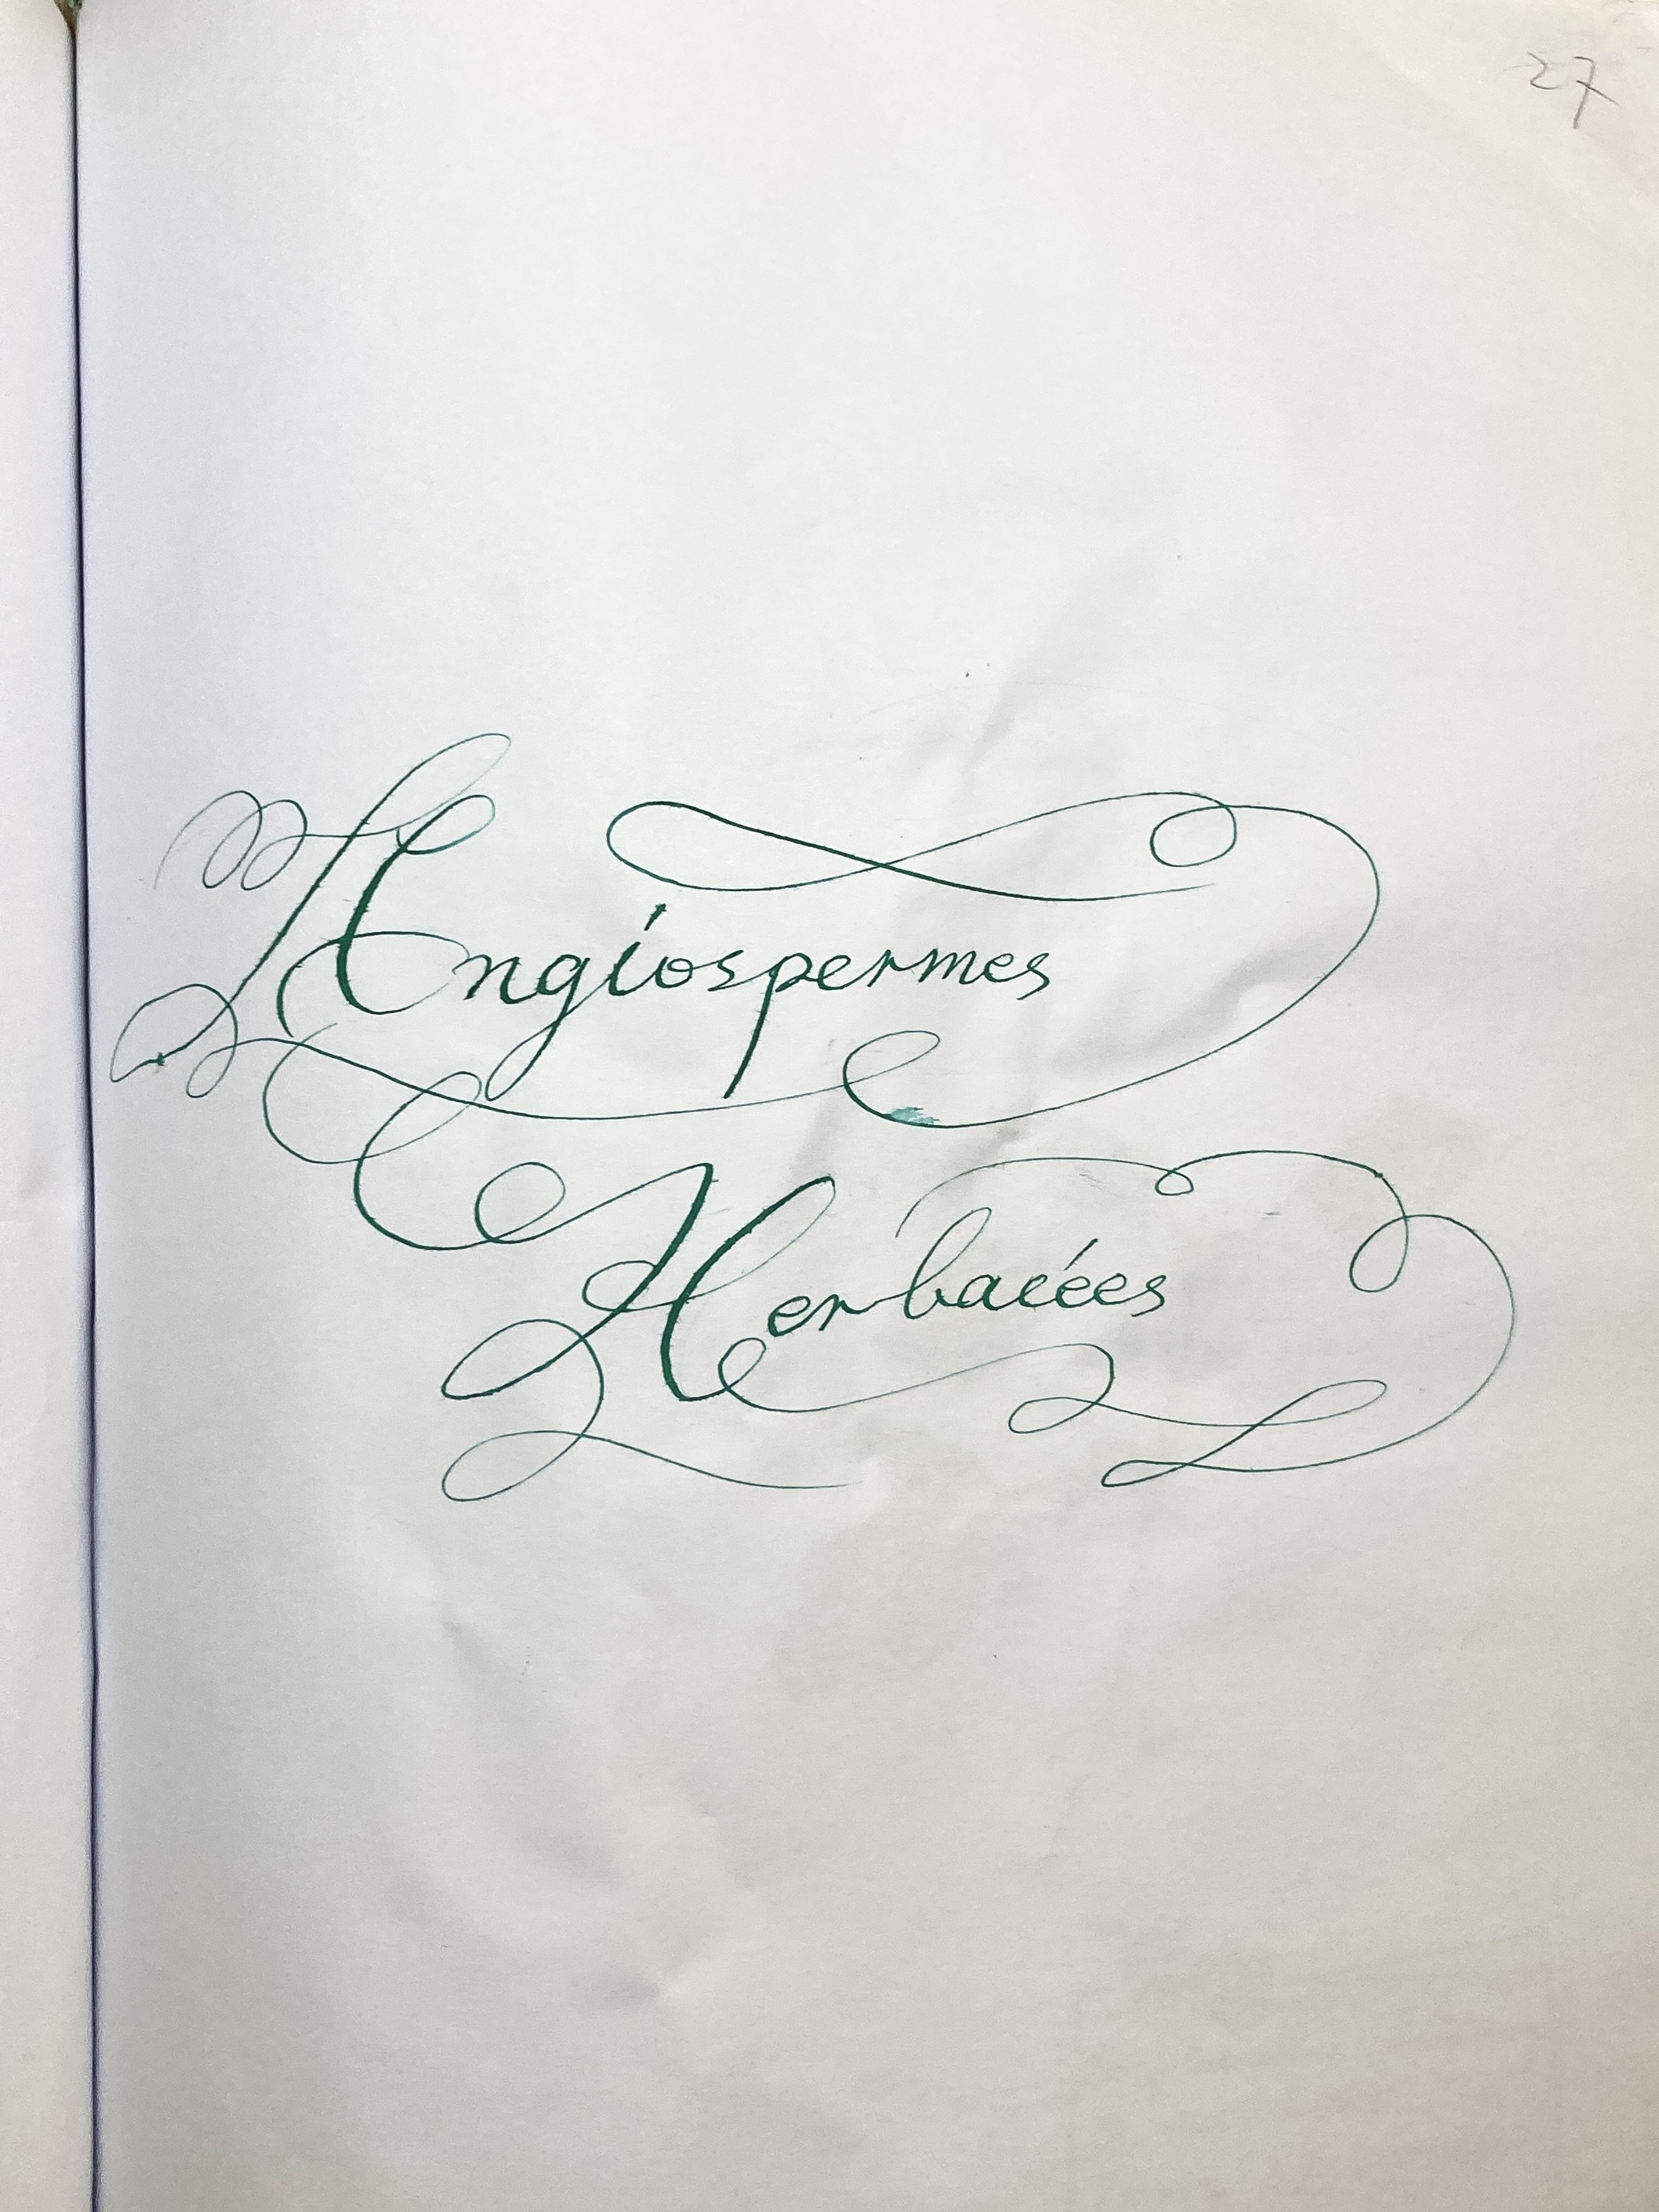 27
Angiospermes
Herbacées